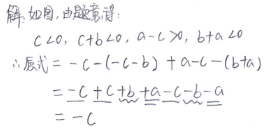 解:如图,由题意得:
c<0, c+b<0, a-c>0, b+a<0
∴原式=-c-(-c-b)+a-c-(b+a)
=-c+c+b+a-c-b-a
=-c